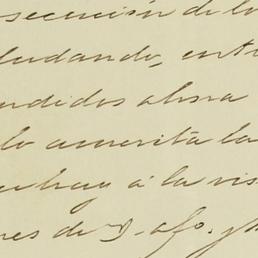 secución de lo
ludando, entr
ndidos ahora
lo amerita la
á la vis
nes de D. Afo. y